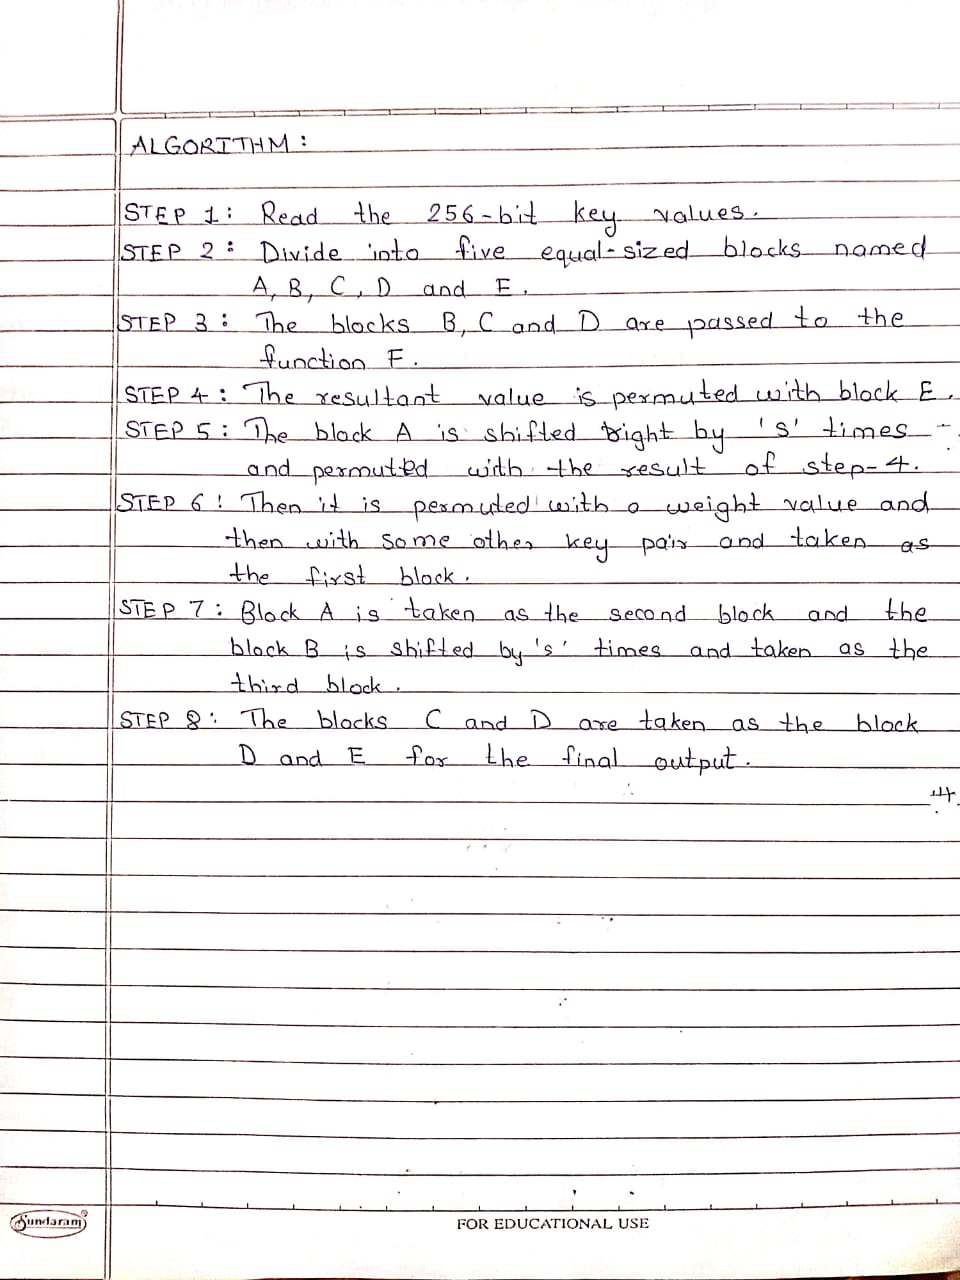 ALGORITHM :
STEP 1 : Read the 256-bit key values.
STEP 2 : Divide into five equal-sized blocks named
A, B, C, D and E.
STEP 3 : The blocks B, C and D are passed to the
function F.
STEP 4 : The resultant value is permuted with block E.
STEP 5 : The block A is shifted right by 's' times
and permuted with the result of step-4.
STEP 6 : Then it is permuted with a weight value and
then with some other key pair and taken as
the first block.
STEP 7 : Block A is taken as the second block and the
block B is shifted by 's' times and taken as the
third block.
STEP 8 : The blocks C and D are taken as the block
D and E for the final output.
Sundaram
FOR EDUCATIONAL USE